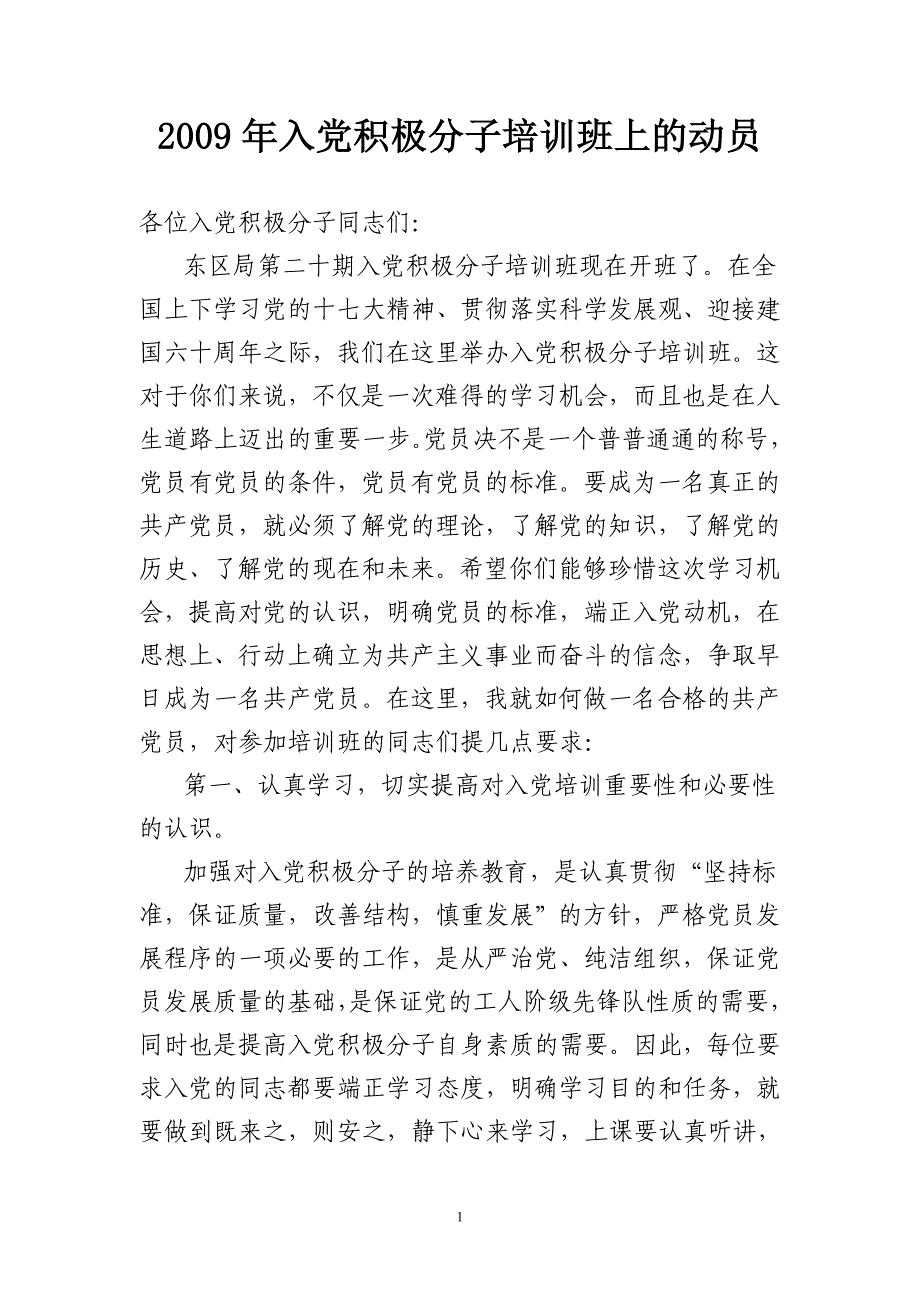 2009 年入党积极分子培训班上的动员
各位入党积极分子同志们：
东区局第二十期入党积极分子培训班现在开班了。在全
国上下学习党的十七大精神、贯彻落实科学发展观、迎接建
国六十周年之际，我们在这里举办入党积极分子培训班。这
对于你们来说，不仅是一次难得的学习机会，而且也是在人
生道路上迈出的重要一步。党员决不是一个普普通通的称号，
党员有党员的条件，党员有党员的标准。要成为一名真正的
共产党员，就必须了解党的理论，了解党的知识，了解党的
历史、了解党的现在和未来。希望你们能够珍惜这次学习机
会，提高对党的认识，明确党员的标准，端正入党动机，在
思想上、行动上确立为共产主义事业而奋斗的信念，争取早
日成为一名共产党员。在这里，我就如何做一名合格的共产
党员，对参加培训班的同志们提几点要求：
第一、认真学习，切实提高对入党培训重要性和必要性
的认识。
加强对入党积极分子的培养教育，是认真贯彻“坚持标
准，保证质量，改善结构，慎重发展”的方针，严格党员发
展程序的一项必要的工作，是从严治党、纯洁组织，保证党
员发展质量的基础，是保证党的工人阶级先锋队性质的需要，
同时也是提高入党积极分子自身素质的需要。因此，每位要
求入党的同志都要端正学习态度，明确学习目的和任务，就
要做到既来之，则安之，静下心来学习，上课要认真听讲，
1